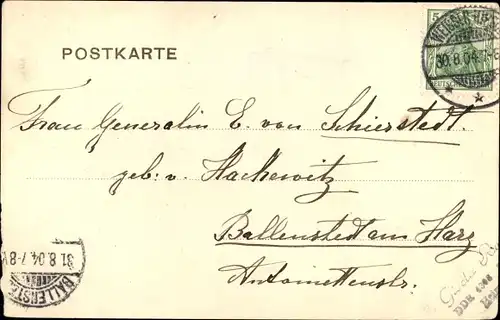 POSTKARTE
5
30.8.04.
DEUTSCHES
Frau Generalin E. von Schierstedt.
geb: v. Hackewitz
Ballenstedt am Harz
Antoinettenstr.
31.8.04.7-8V
BALLENSTEDT
DDR